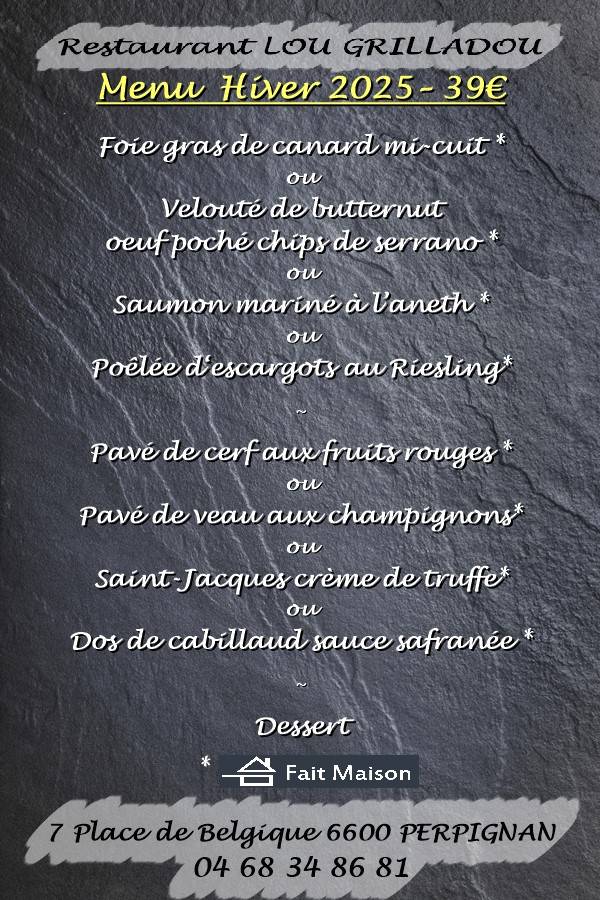 Restaurant LOU GRILLADOU
Menu Hiver 2025 - 39€
Foie gras de canard mi-cuit *
ou
Velouté de butternut
oeuf poché chips de serrano *
ou
Saumon mariné à l'aneth *
ou
Poêlée d'escargots au Riesling*
~
Pavé de cerf aux fruits rouges *
ou
Pavé de veau aux champignons*
ou
Saint-Jacques crème de truffe*
ou
Dos de cabillaud sauce safranée *
~
Dessert
* Fait Maison
7 Place de Belgique 6600 PERPIGNAN
04 68 34 86 81